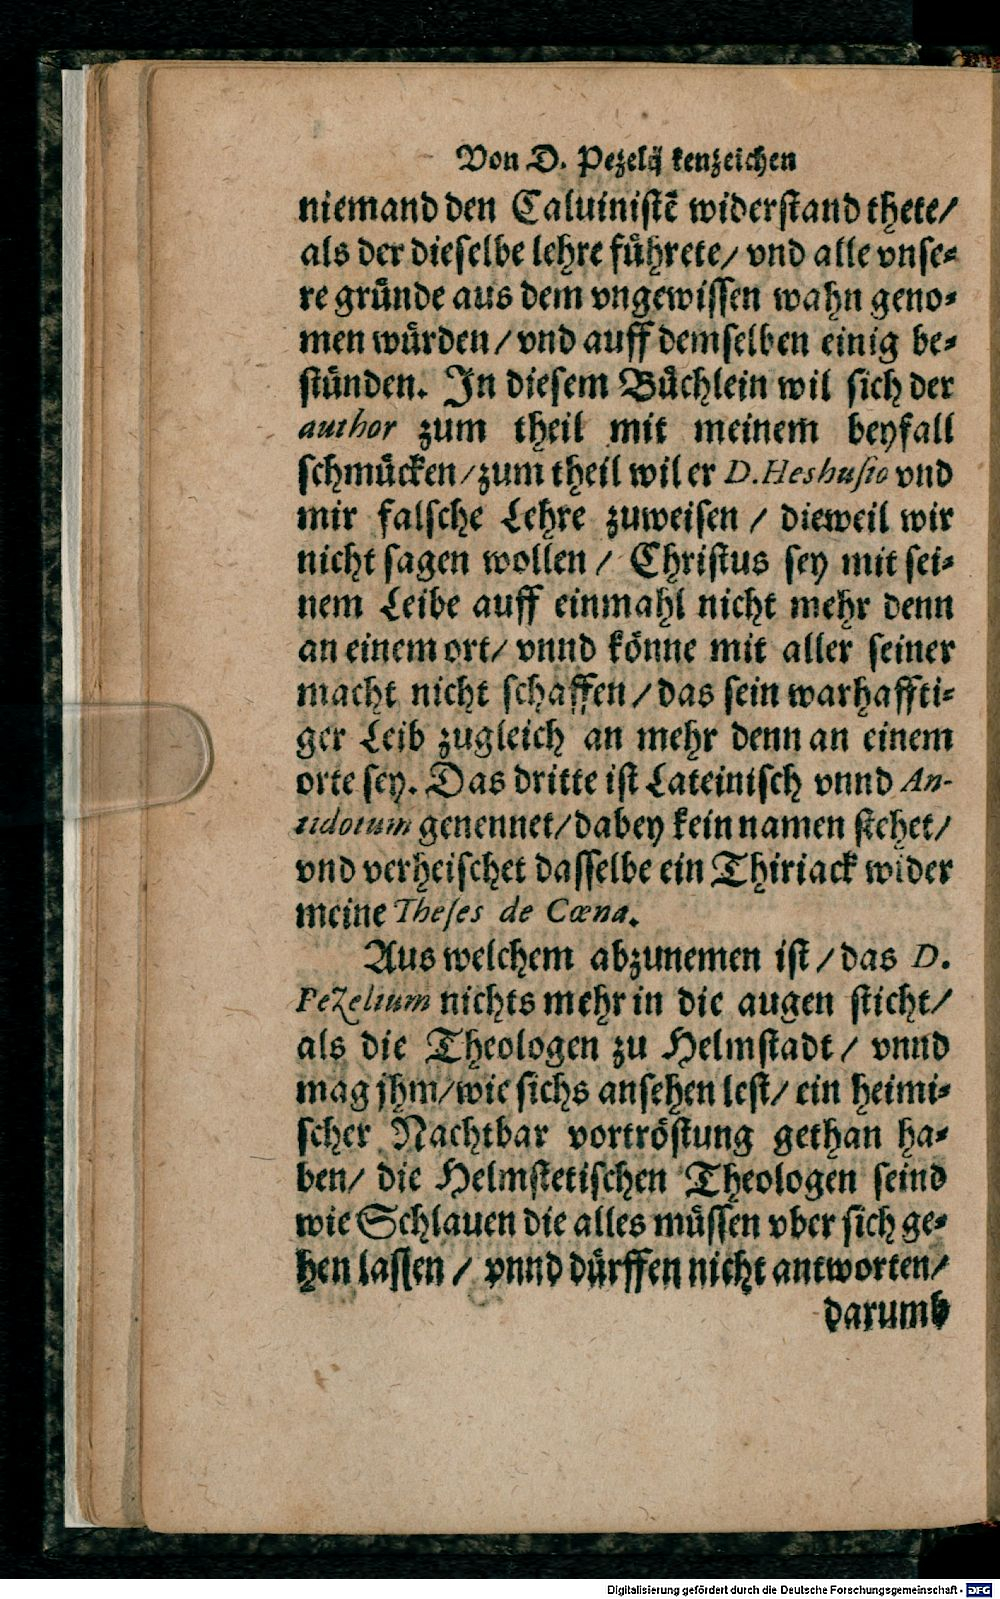 Von D. Pezelij kenzeichen
niemand den Caluinistē widerstand thete/
als der dieselbe lehre führete/ vnd alle vnse-
re gründe aus dem vngewissen wahn geno-
men würden/ vnd auff demselben einig be-
stünden. In diesem Büchlein wil sich der
author zum theil mit meinem beyfall
schmücken/ zum theil wil er D. Heshusio vnd
mir falsche Lehre zuweisen / dieweil wir
nicht sagen wollen / Christus sey mit sei-
nem Leibe auff einmahl nicht mehr denn
an einem ort/ vnnd könne mit aller seiner
macht nicht schaffen / das sein warhaffti-
ger Leib zugleich an mehr denn an einem
orte sey. Das dritte ist Lateinisch vnnd An-
tidotum genennet/ dabey kein namen stehet/
vnd verheischet dasselbe ein Thiriack wider
meine Theses de Cœna.
Aus welchem abzunemen ist / das D.
Pezelium nichts mehr in die augen sticht/
als die Theologen zu Helmstadt / vnnd
mag jhm/ wie sichs ansehen lest/ ein heimi-
scher Nachtbar vortröstung gethan ha-
ben/ die Helmstetischen Theologen seind
wie Schlauen die alles müssen vber sich ge-
hen lassen / vnnd dürffen nicht antworten/
darumb
Digitalisierung gefördert durch die Deutsche Forschungsgemeinschaft - DFG